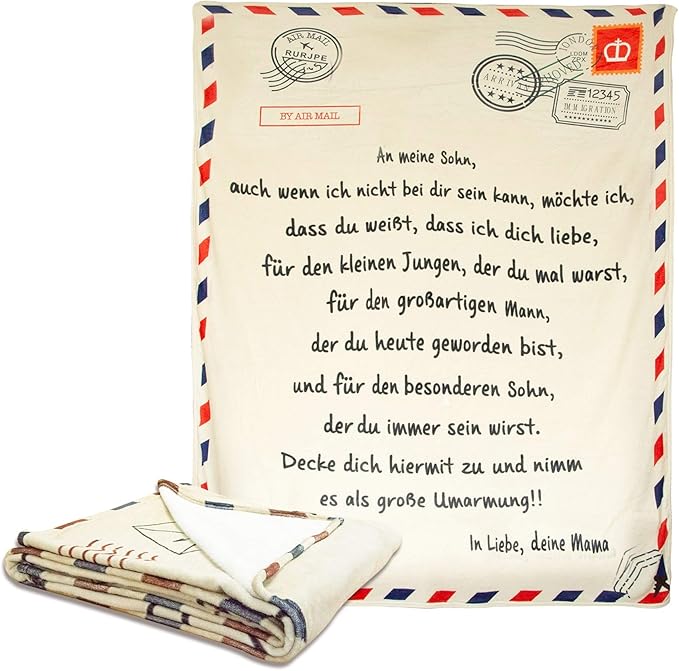 AIR MAIL
RURJPE
LONDON
ARRIVAL
12345
IMMIGRATION
BY AIR MAIL
An meine Sohn,
auch wenn ich nicht bei dir sein kann, möchte ich,
dass du weißt, dass ich dich liebe,
für den kleinen Jungen, der du mal warst,
für den großartigen Mann,
der du heute geworden bist,
und für den besonderen Sohn,
der du immer sein wirst.
Decke dich hiermit zu und nimm
es als große Umarmung!!
In Liebe, deine Mama